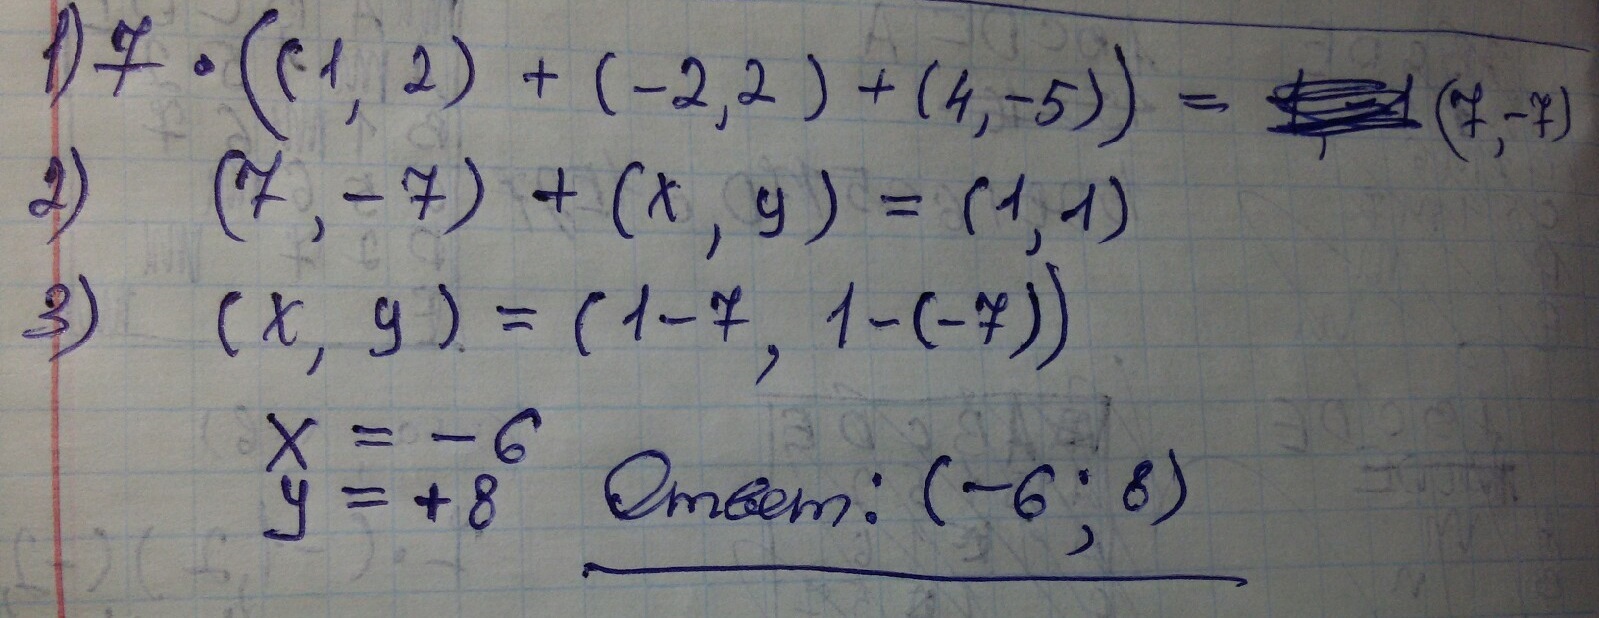 1) 7 · ((1, 2) + (-2,2) + (4,-5)) = (7,-7)
2) (7, -7) + (x, y) = (1,1)
3) (x, y) = (1-7, 1-(-7))
x = -6
y = +8
Ответ: (-6; 8)